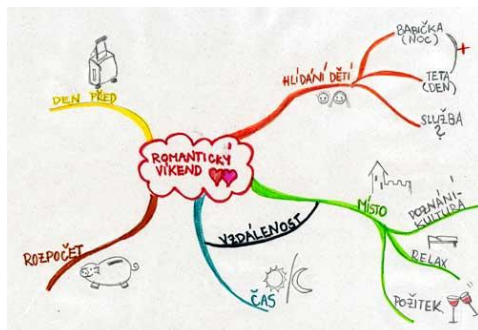 ROMANTICKÝ
VÍKEND
DEN PŘED
HLÍDÁNÍ DĚTÍ
BABIČKA
(NOC)
+
TETA
(DEN)
SLUŽBA
?
MÍSTO
POZNÁNÍ-
KULTURA
RELAX
POŽITEK
VZDÁLENOST
ČAS
ROZPOČET